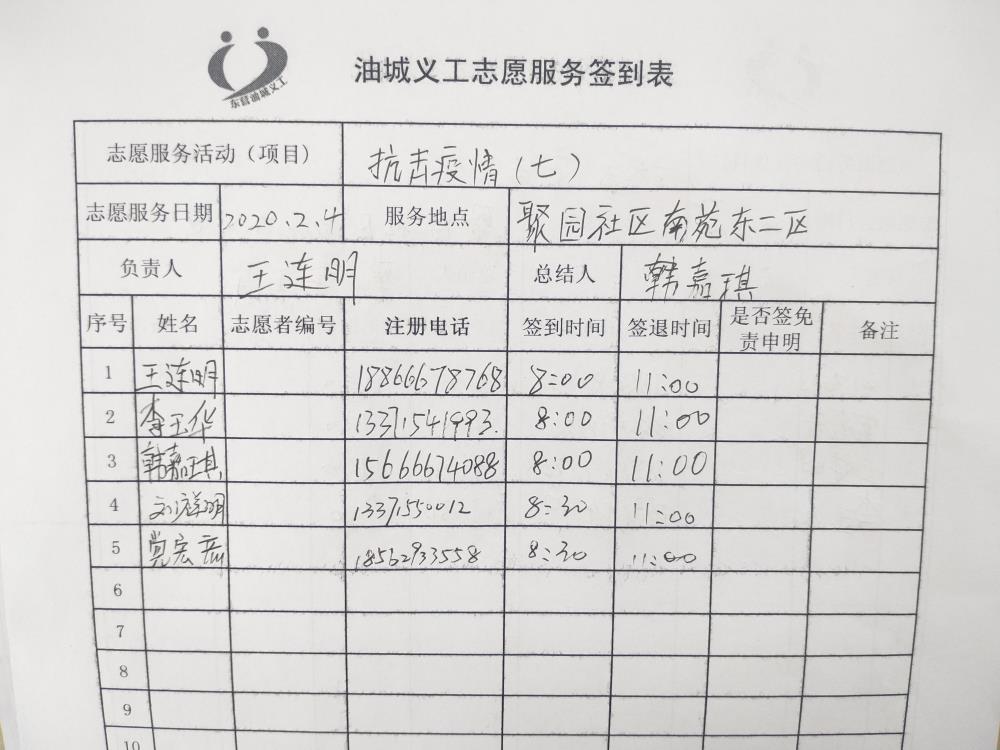 东营油城义工
油城义工志愿服务签到表
志愿服务活动（项目） 抗击疫情（七）
志愿服务日期 2020.2.4 服务地点 聚园社区南苑东二区
负责人 王连明 总结人 韩嘉琪
序号 姓名 志愿者编号 注册电话 签到时间 签退时间 是否签免责申明 备注
1 王连明 18866678768 8:00 11:00
2 李玉华 13371541993. 8:00 11:00
3 韩嘉琪 15666674088 8:00 11:00
4 刘洪明 13371550012 8:30 11:00
5 党宏磊 18562933558 8:30 11:00
6
7
8
9
10